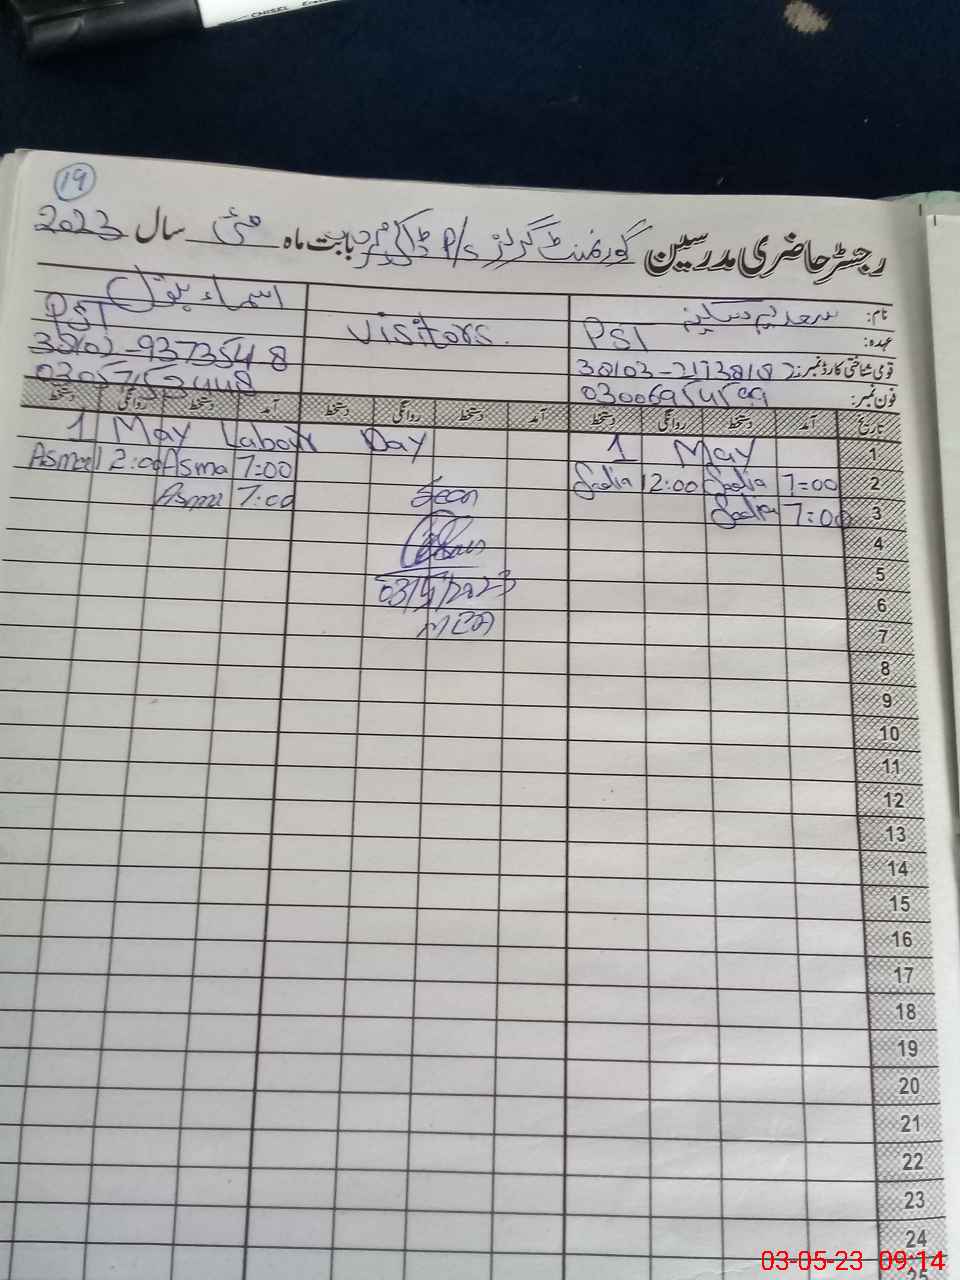 CHISEL
19
رجسٹر حاضری مدرسین گورنمنٹ گرلز P/S بابت ماہ مئی سال 2023
نام: سعدیہ سکینہ
visitors.
اسماء بتول
عہدہ: PST
PST
قومی شناختی کارڈ نمبر:
38102-9373548
فون نمبر:
تاریخ آمد دستخط روانگی دستخط آمد دستخط روانگی دستخط آمد دستخط روانگی دستخط
1 1 May 1 May Labour Day
2 7=00 Sadia 12:00 Sadia Seen 7:00 Asma 12:00 Asma
3 7:00 Sadia 7:00 Asma
4
5 03/5/2023
6 MEA
7
8
9
10
11
12
13
14
15
16
17
18
19
20
21
22
23
24
25
03-05-23 09:14